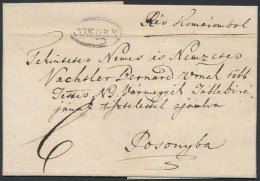 Rév Komáromból
Tekintetes Nemes és Nemzetes
Wachtler Bernárd Urnak több
Ttes N. Vármegyék Tablabirá-
jának tisztelettel ajánlva
6
Posonyba